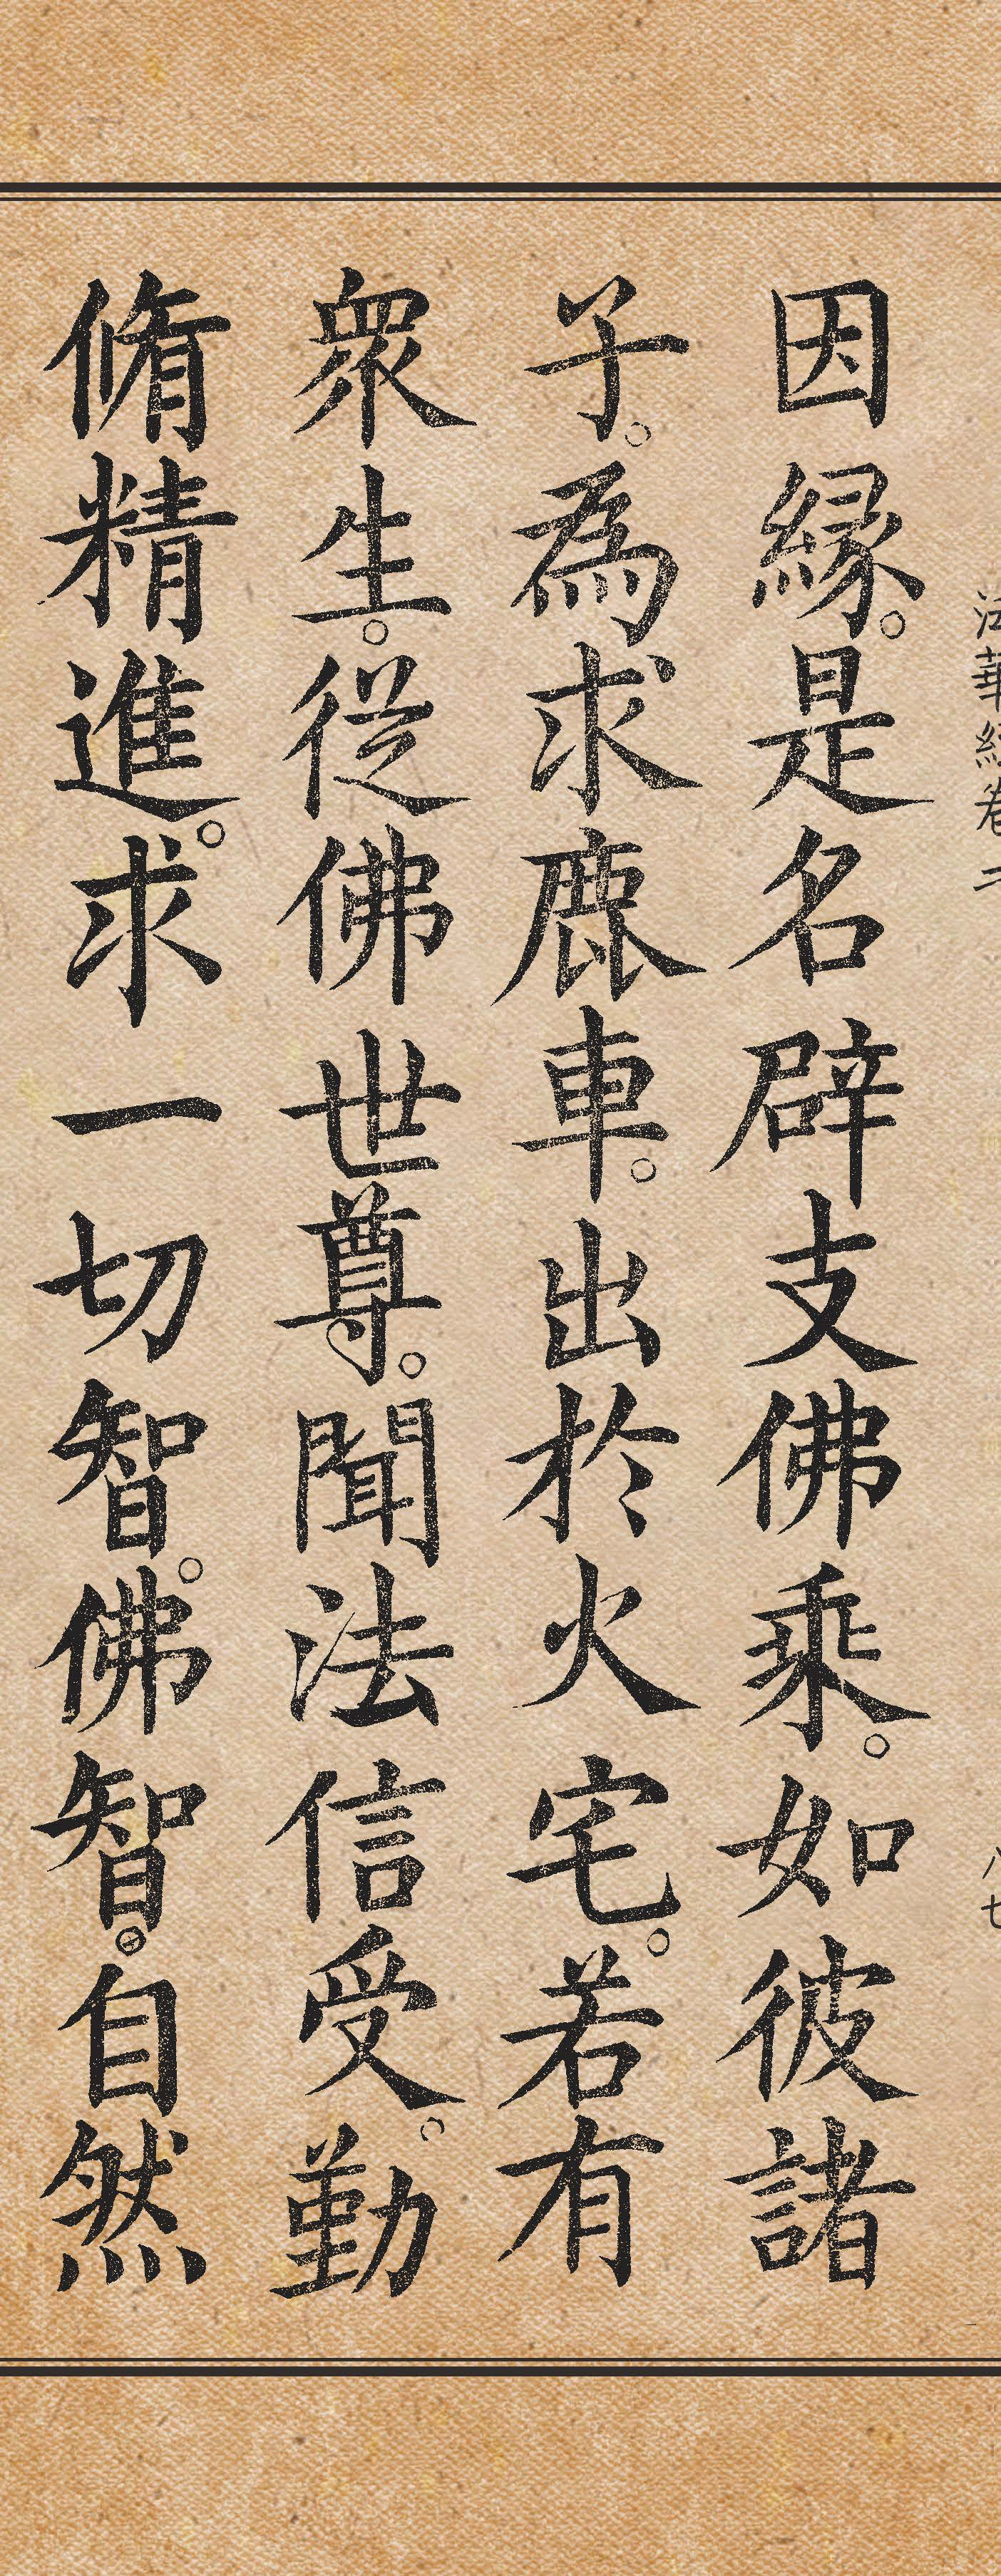 法華經卷二 八七
因緣。是名辟支佛乘。如彼諸
子。為求鹿車。出於火宅。若有
眾生。從佛世尊。聞法信受。勤
脩精進。求一切智。佛智。自然